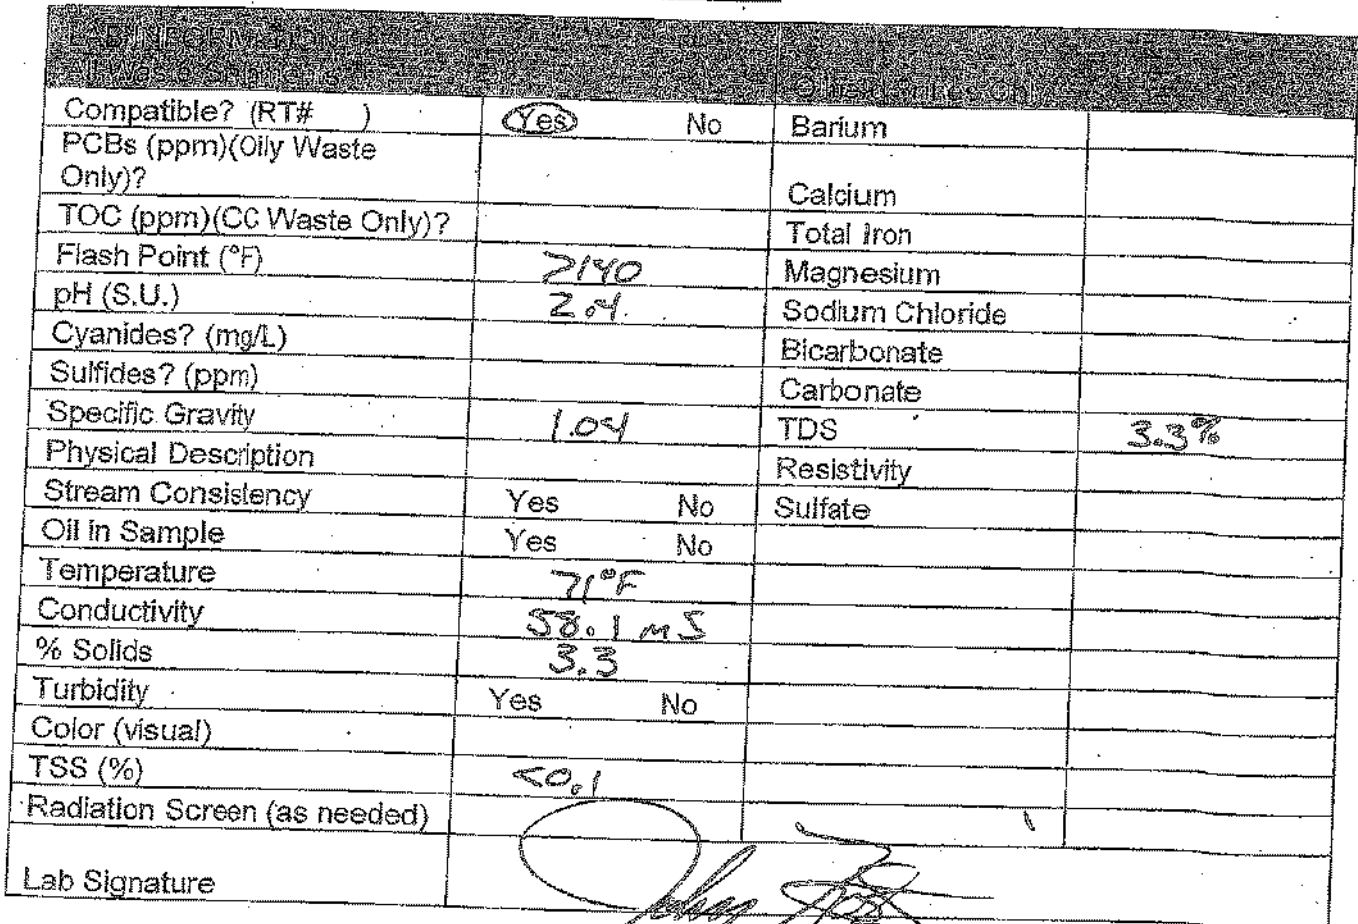 LAB INFORMATION
All Waste Shipments
Compatible? (RT# ) Yes No Barium
PCBs (ppm)(Oily Waste
Only)? Calcium
TOC (ppm)(CC Waste Only)? Total Iron
Flash Point (°F) >140 Magnesium
pH (S.U.) 2.4 Sodium Chloride
Cyanides? (mg/L) Bicarbonate
Sulfides? (ppm) Carbonate
Specific Gravity 1.04 TDS 3.3%
Physical Description Resistivity
Stream Consistency Yes No Sulfate
Oil in Sample Yes No
Temperature 71°F
Conductivity 58.1 mS
% Solids 3.3
Turbidity Yes No
Color (visual)
TSS (%) <0.1
Radiation Screen (as needed)
Lab Signature